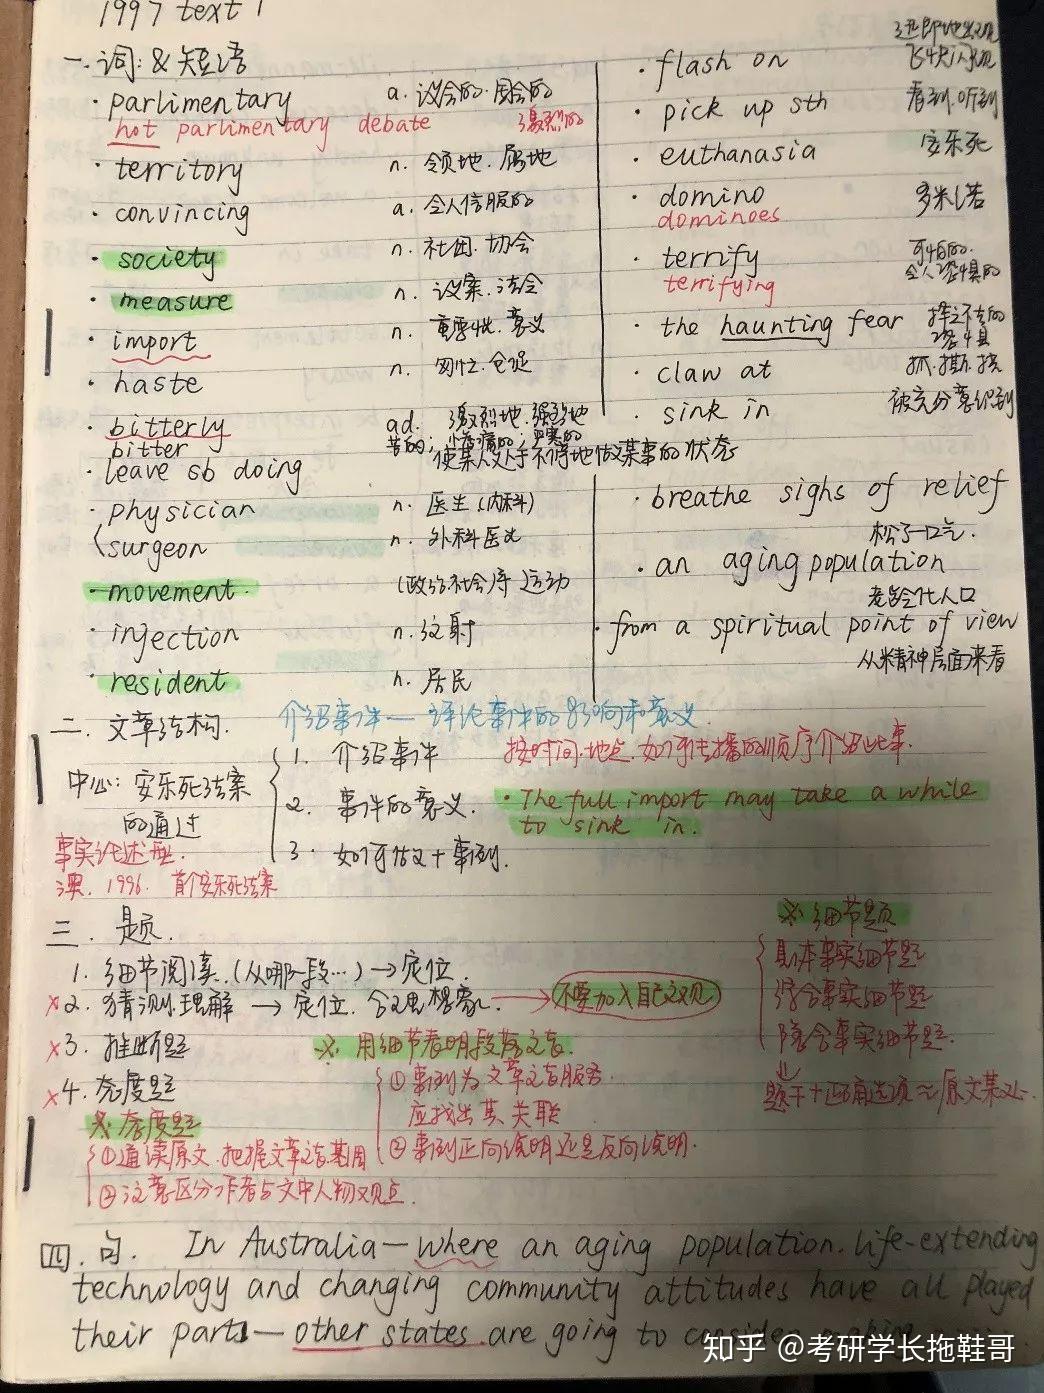 1997 text 1
一. 词: & 短语
· parlimentary a. 议会的. 国会的
hot parlimentary debate 激烈的
· territory n. 领地. 属地
· convincing a. 令人信服的
· society n. 社团. 协会
· measure n. 议案. 法令
· import n. 重要性. 意义
· haste n. 匆忙. 仓促
· bitterly ad. 激烈地. 强烈地
bitter 苦的; 悲痛的; 严寒的
· leave sb doing 使某人处于不停地做某事的状态
· physician n. 医生 (内科)
surgeon n. 外科医生
· movement (政治社会)序 运动
· injection n. 注射
· resident n. 居民
· flash on 迅即地出现
飞快闪现
· pick up sth 看到. 听到
· euthanasia 安乐死
· domino 多米诺
dominoes
· terrify 可怕的.
terrifying 令人恐惧的
· the haunting fear 挥之不去的
恐惧
· claw at 抓. 撕. 挠
· sink in 被充分意识到
· breathe sighs of relief
松了一口气.
· an aging population
老龄化人口
· from a spiritual point of view
从精神层面来看
二. 文章结构. 介绍事件 — 评论事件的影响和意义.
中心: 安乐死法案
的通过
事实论述型.
澳. 1996. 首个安乐死法案
1. 介绍事件 按时间. 地点. 如何传播的顺序介绍此事.
2. 事件的意义. · The full import may take a while
to sink in.
3. 如何做文+事例.
三. 题.
1. 细节阅读. (从哪一段…) → 定位.
×2. 猜测. 理解 → 定位. 含义 → 不要加入自己观点
×3. 推断题
×4. 态度题
※ 态度题
①通读原文. 把握文章之基调
②注意区分作者与文中人物观点.
※ 用细节表明段落之旨.
① 事例为文章之旨服务.
应找出其关联
② 事例正向说明还是反向说明.
※ 细节题
具体事实细节题
综合事实细节题
隐含事实细节题.
↓
题干+正确选项≈原文某处.
四. 句. In Australia — where an aging population. life-extending
technology and changing community attitudes have all played
their part — other states are going to consider making
知乎 @考研学长拖鞋哥